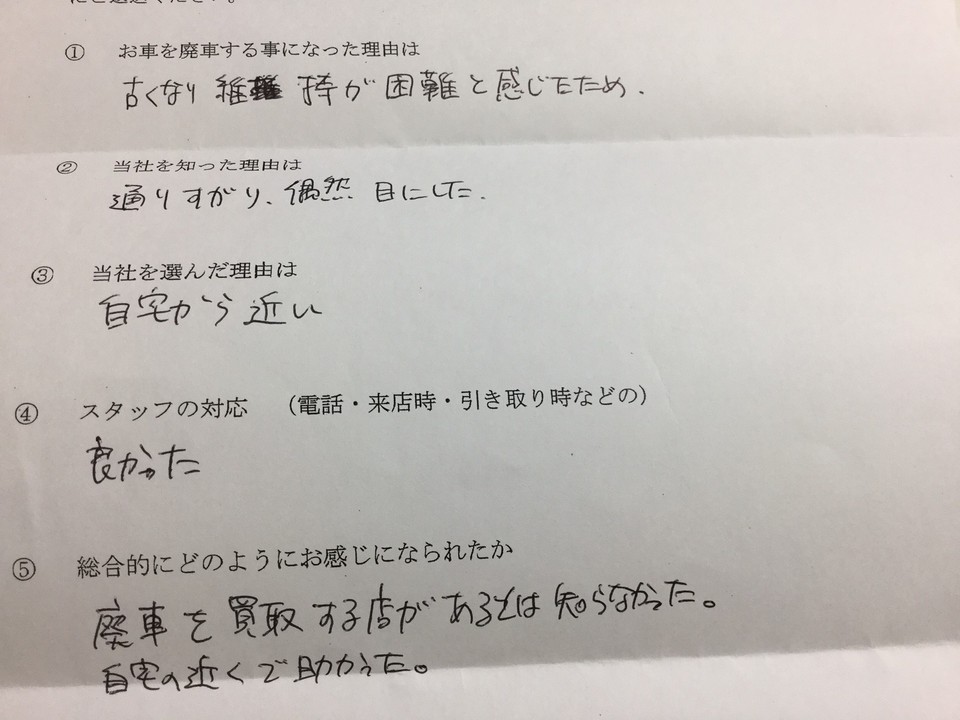 にご返送ください。
① お車を廃車する事になった理由は
古くなり 維持が困難と感じたため.
② 当社を知った理由は
通りすがり、偶然 目にした.
③ 当社を選んだ理由は
自宅から近い
④ スタッフの対応 (電話・来店時・引き取り時などの)
良かった
⑤ 総合的にどのようにお感じになられたか
廃車を買取する店があるとは知らなかった。
自宅の近くで助かった。